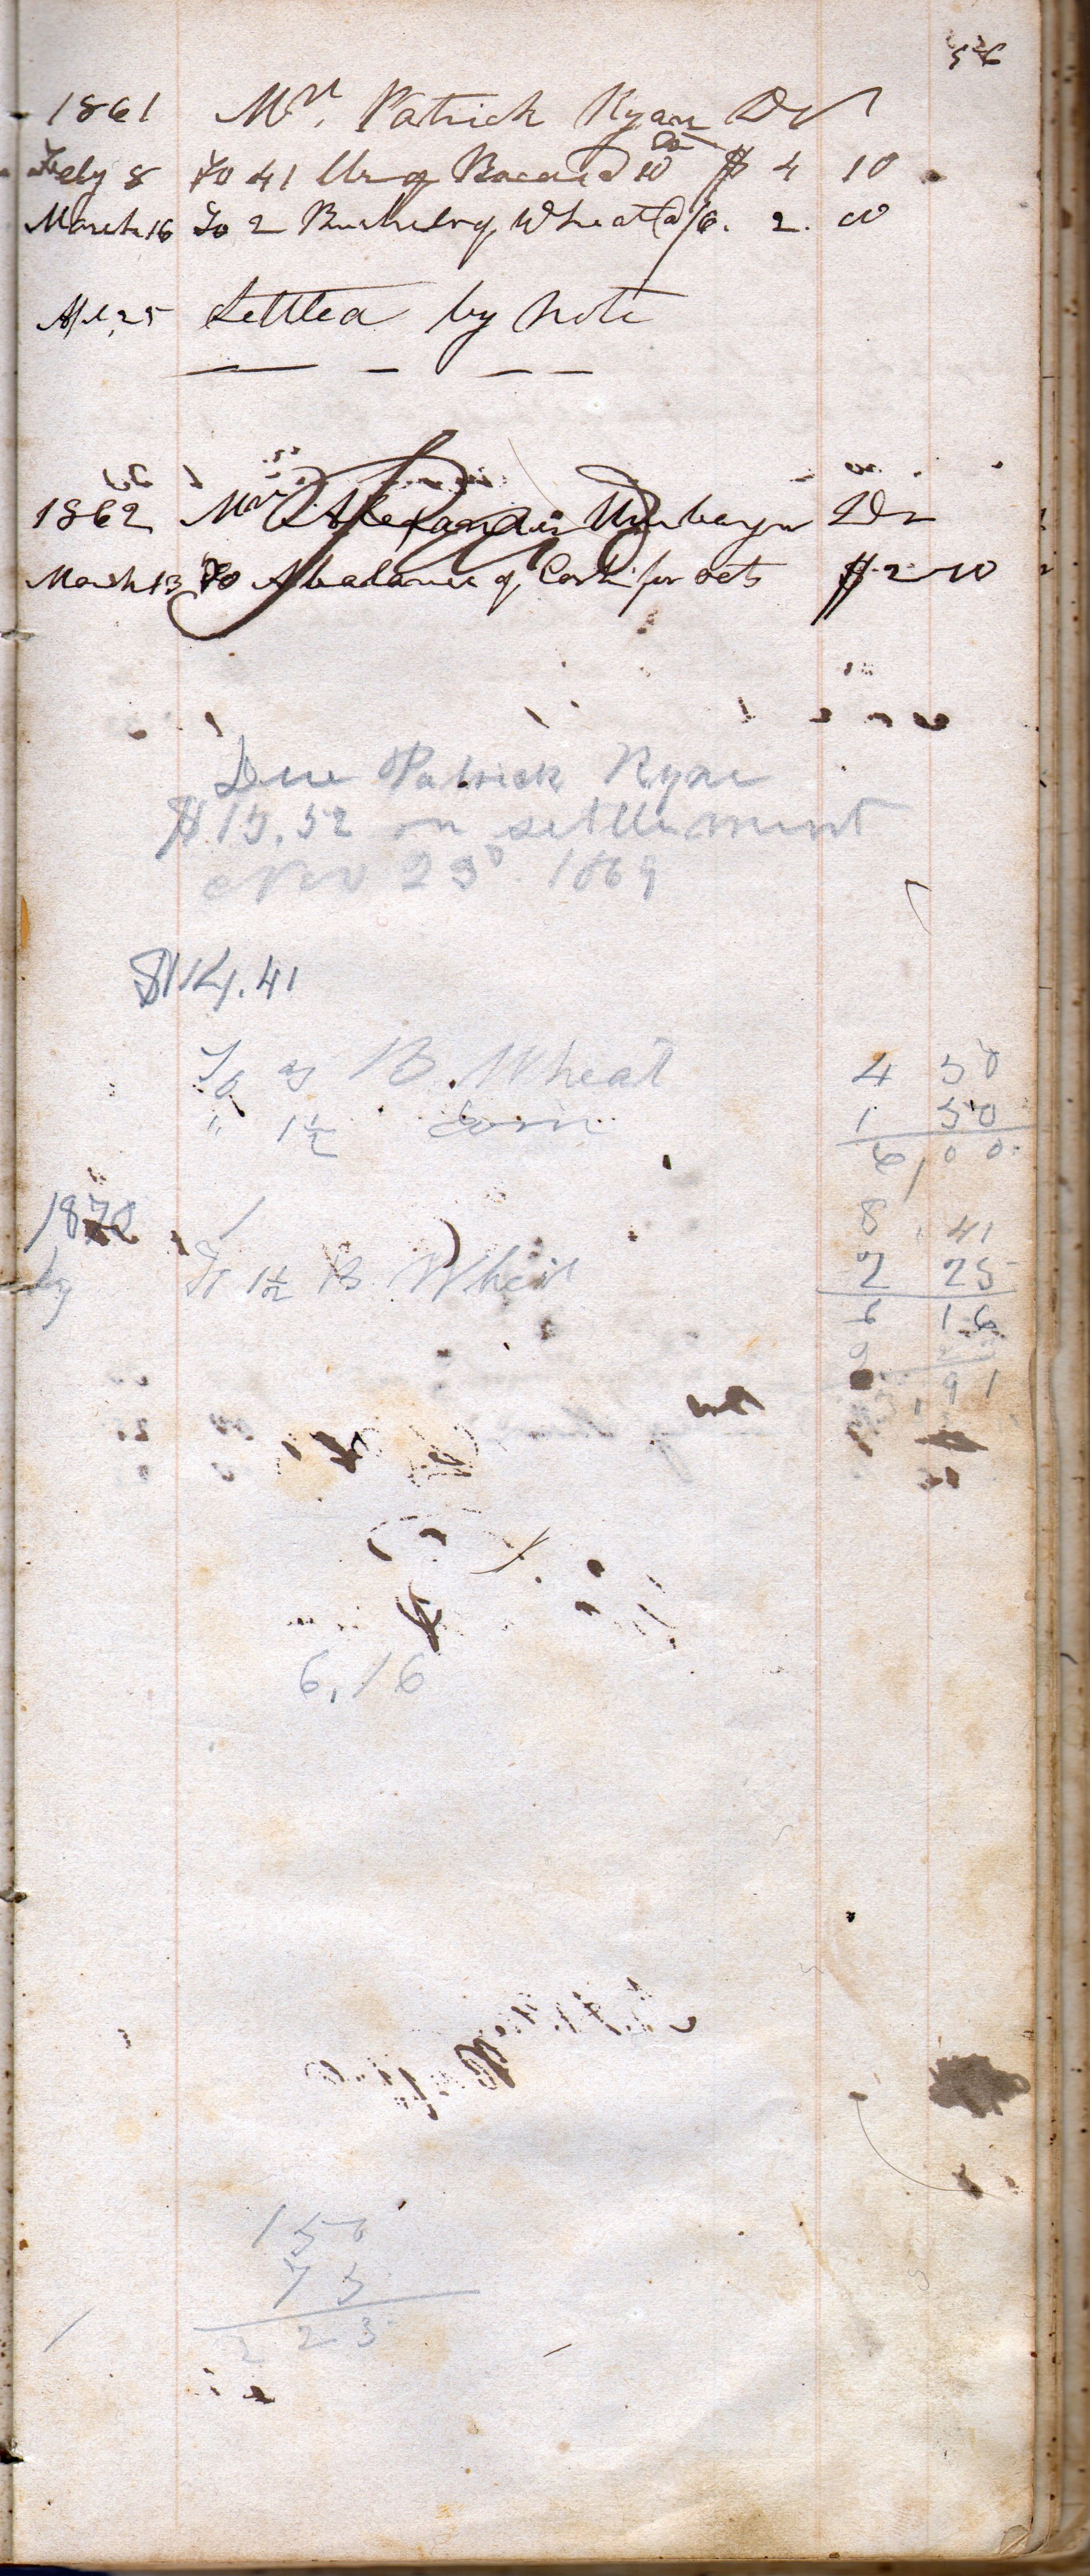 56
1861 Mr. Patrick Ryan Dr
Feby 8 To 41 lbs of Bacon @ 10 $ 4 10
March 16 To 2 Bushels of Wheat @ /6. 2. 00
Apl. 25 Settled by Note
1862 Mr Alexander Dr
March 13 To A balance of Cash for oats $ 2 10
Due Patrick Ryan
$15.52 on settlement
Nov 23d 1869
$14.41
To 3 B. Wheat 4 50
" 1½ Corn 1 50
6,00
1870
8,41
by To 1½ B Wheat 2 25
6 16
,91
6,16
150
75
225